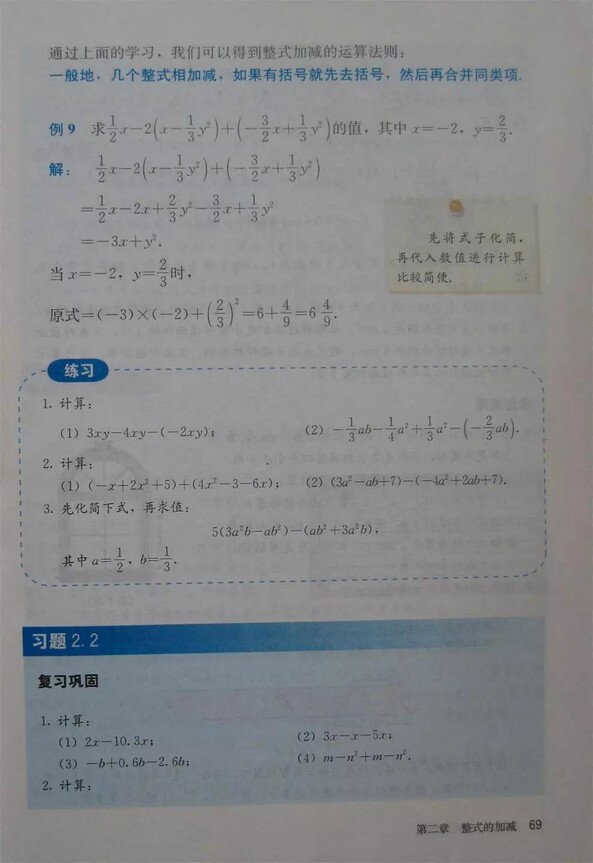 通过上面的学习，我们可以得到整式加减的运算法则：
一般地，几个整式相加减，如果有括号就先去括号，然后再合并同类项.
例 9 求\frac{1}{2}x-2(x-\frac{1}{3}y²)+(-\frac{3}{2}x+\frac{1}{3}y²)的值，其中 x=-2，y=\frac{2}{3}.
解： \frac{1}{2}x-2(x-\frac{1}{3}y²)+(-\frac{3}{2}x+\frac{1}{3}y²)
=\frac{1}{2}x-2x+\frac{2}{3}y²-\frac{3}{2}x+\frac{1}{3}y²
=-3x+y².
先将式子化简，
再代入数值进行计算
比较简便.
当 x=-2，y=\frac{2}{3}时，
原式=(-3)×(-2)+(\frac{2}{3})²=6+\frac{4}{9}=6\frac{4}{9}.
练习
1. 计算：
(1) 3xy-4xy-(-2xy)； (2) -\frac{1}{3}ab-\frac{1}{4}a²+\frac{1}{3}a²-(-\frac{2}{3}ab).
2. 计算：
(1) (-x+2x²+5)+(4x²-3-6x)； (2) (3a²-ab+7)-(-4a²+2ab+7).
3. 先化简下式，再求值：
5(3a²b-ab²)-(ab²+3a²b)，
其中 a=\frac{1}{2}，b=\frac{1}{3}.
习题 2.2
复习巩固
1. 计算：
(1) 2x-10.3x； (2) 3x-x-5x；
(3) -b+0.6b-2.6b； (4) m-n²+m-n².
2. 计算：
第二章 整式的加减 69